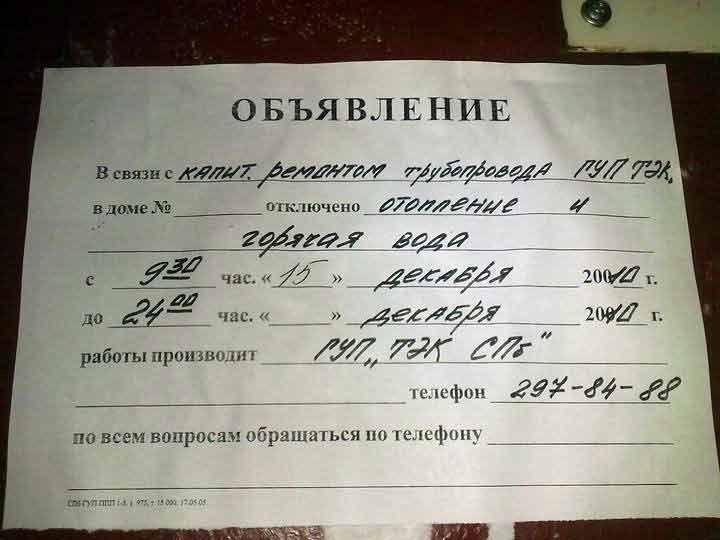 ОБЪЯВЛЕНИЕ
В связи с капит. ремонтом трубопровода ГУП ТЭК,
в доме № отключено отопление и
горячая вода
с 9 30 час. «15» декабря 2010 г.
до 24 00 час. « » декабря 2010 г.
работы производит ГУП „ТЭК СПб"
телефон 297-84-88
по всем вопросам обращаться по телефону
СПб ГУП ППП 1-3, з. 975, т. 15 000, 17.05.05